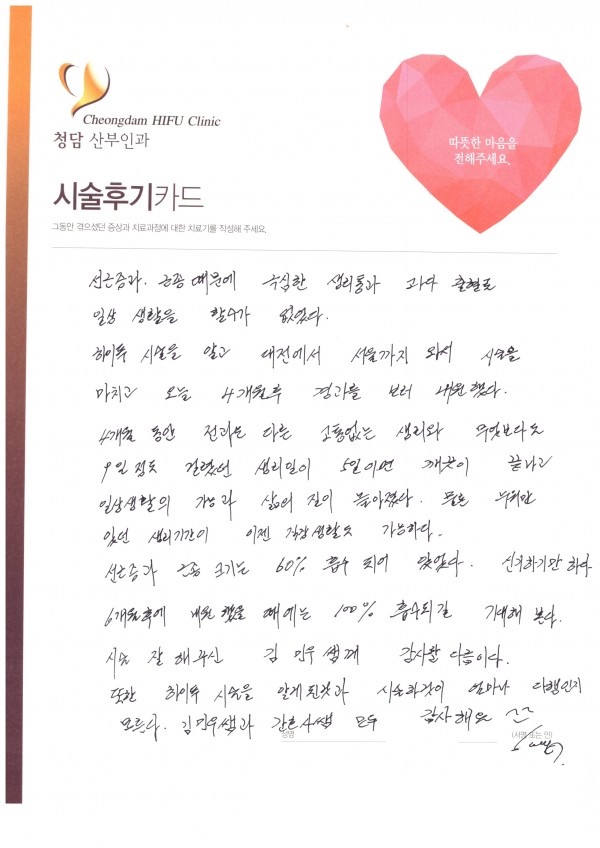 Cheongdam HIFU Clinic
청담 산부인과
따뜻한 마음을
전해주세요.
시술후기카드
그동안 겪으셨던 증상과 치료과정에 대한 치료기를 작성해 주세요.
선근증과. 근종 때문에 극심한 생리통과 과다 출혈로
일상 생활을 할수가 없었다.
하이푸 시술을 알고 대전에서 서울까지 와서 시술을
마치고 오늘 4개월후 결과를 보러 내원했다.
4개월 동안 전과는 다른 고통없는 생리와 무엇보다도
9일정도 걸렸던 생리일이 5일이면 깨끗이 끝나고
일상생활의 가능과 삶의 질이 높아졌다. 누워만
있던 생리기간이 이젠 직장생활도 가능하다.
선근증과 근종 크기는 60% 흡수 되어 있었다. 신기하기만 하다
6개월후에 내원 했을 때에는 100% 흡수되길 기대해 본다.
시술 잘 해주신 김민우쌤께 감사할 다름이다.
또한 하이푸 시술을 알게된것과 시술한것이 얼마나 다행인지
모른다. 김민우쌤과 간호사쌤 모두 감사해요 ^^
성명
(서명 또는 인)